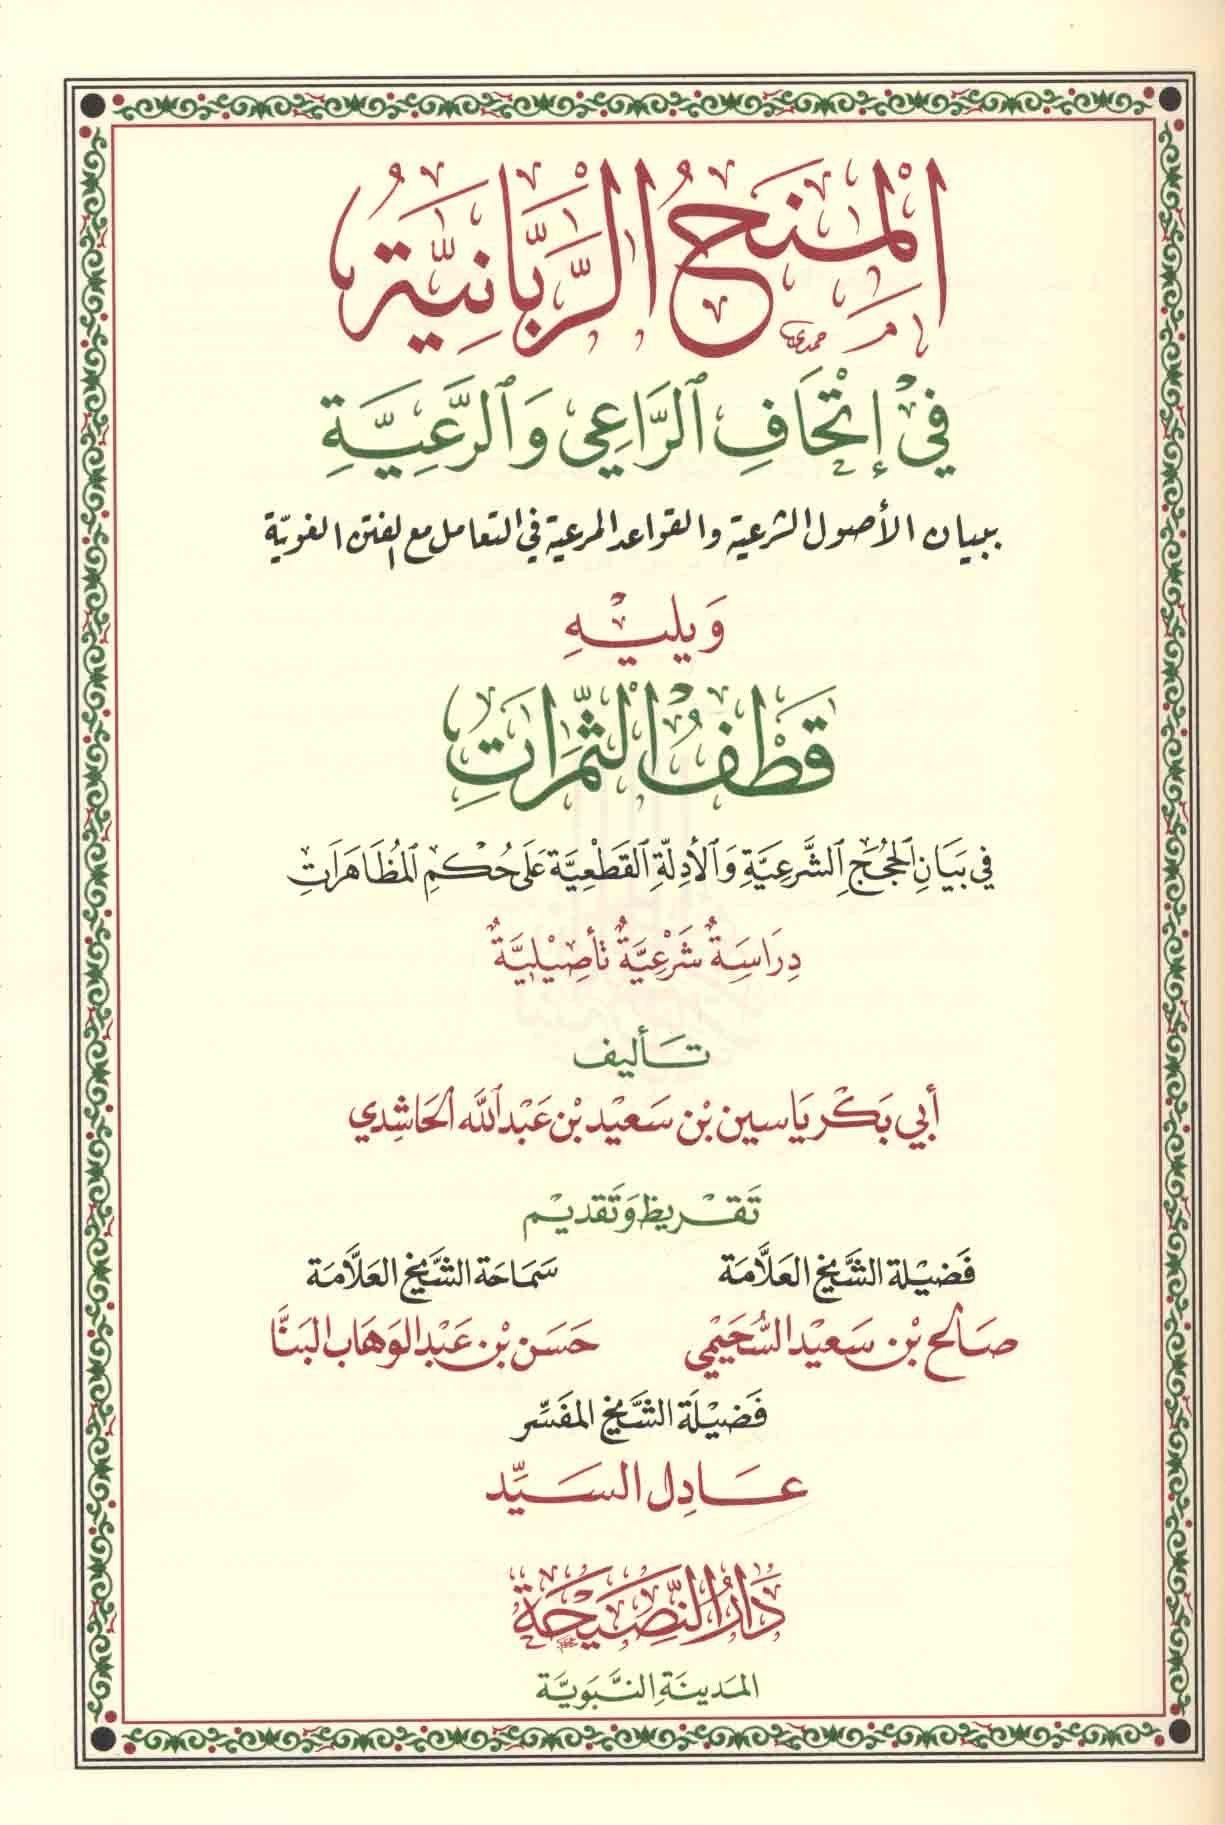 المنح الربانية
في إتحاف الراعي والرعية
ببيان الأصول الشرعية والقواعد المرعية في التعامل مع الفتن الغوية
ويليه
قطف الثمرات
في بيان الحجج الشرعية والأدلة القطعية على حكم المظاهرات
دراسة شرعية تأصيلية
تأليف
أبي بكر ياسين بن سعيد بن عبد الله الحاشدي
تقريظ وتقديم
فضيلة الشيخ العلامة سماحة الشيخ العلامة
صالح بن سعيد السحيمي حسن بن عبد الوهاب البنا
فضيلة الشيخ المفسر
عادل السيد
دار النصيحة
المدينة النبوية